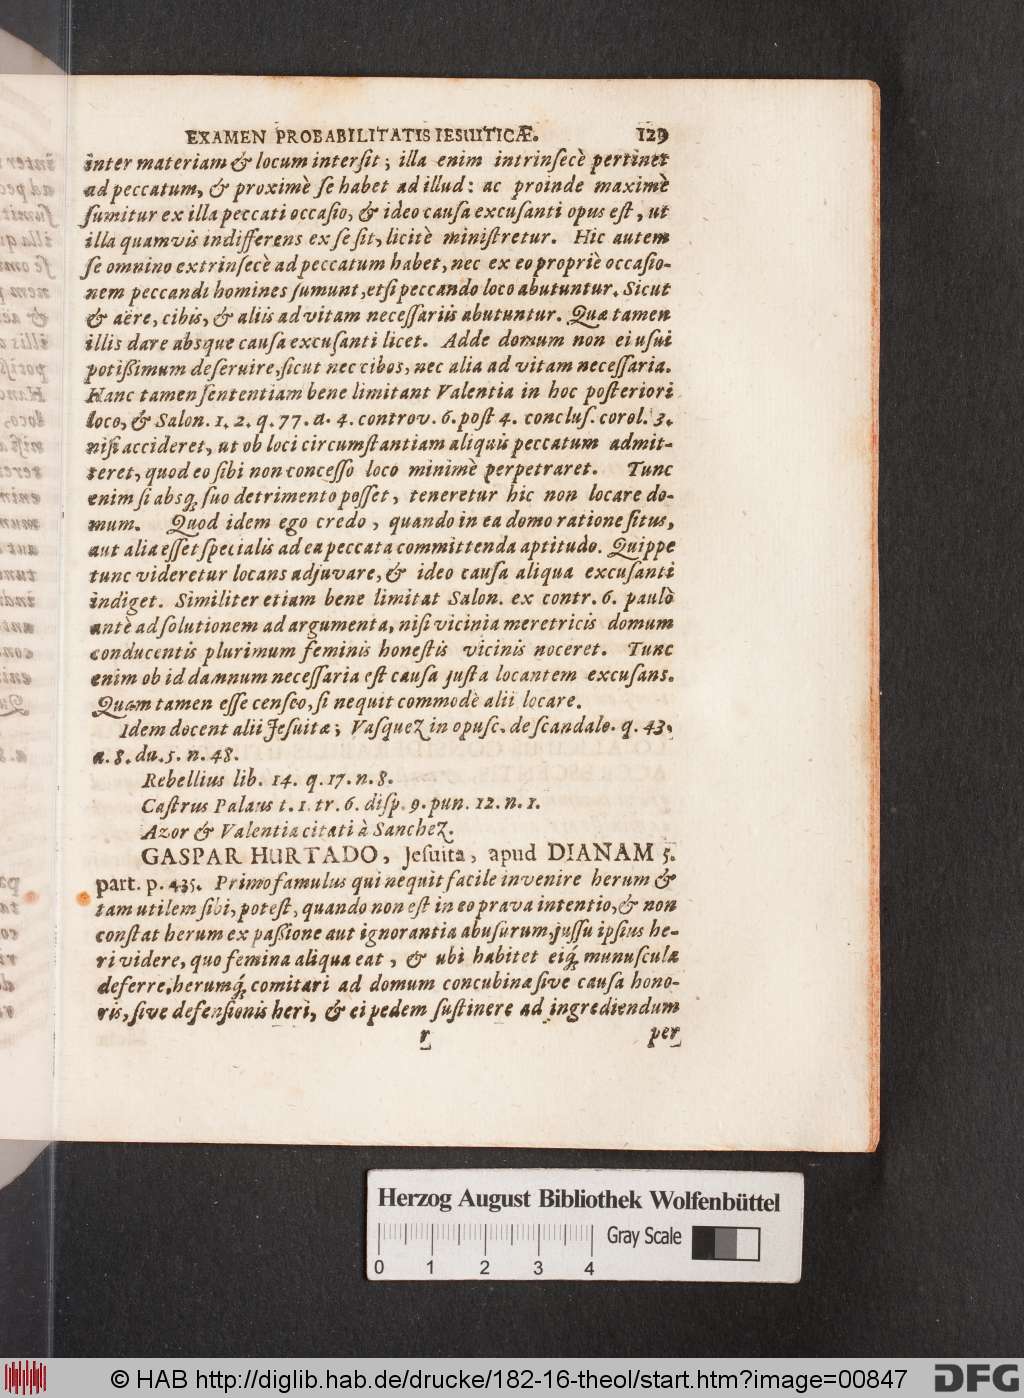 EXAMEN PROBABILITATIS IESUITICÆ. 129
inter materiam & locum intersit; illa enim intrinsecè pertinet
ad peccatum, & proximè se habet ad illud: ac proinde maximè
sumitur ex illa peccati occasio, & ideo causa excusanti opus est, ut
illa quamvis indifferens ex se sit, licitè ministretur. Hic autem
se omnino extrinsecè ad peccatum habet, nec ex eo propriè occasio-
nem peccandi homines sumunt, etsi peccando loco abutuntur. Sicut
& aëre, cibis, & aliis ad vitam necessariis abutuntur. Quæ tamen
illis dare absque causa excusanti licet. Adde domum non ei usui
potißimum deseruire, sicut nec cibos, nec alia ad vitam necessaria.
Hanc tamen sententiam bene limitant Valentia in hoc posteriori
loco, & Salon. 1. 2. q. 77. a. 4. controv. 6. post 4. conclus. corol. 3.
nisi accideret, ut ob loci circumstantiam aliquis peccatum admit-
teret, quod eo sibi non concesso loco minimè perpetraret. Tunc
enim si absq; suo detrimento posset, teneretur hic non locare do-
mum. Quod idem ego credo, quando in ea domo ratione situs,
aut alia esset specialis ad ea peccata committenda aptitudo. Quippe
tunc videretur locans adjuvare, & ideo causa aliqua excusanti
indiget. Similiter etiam bene limitat Salon. ex contr. 6. paulò
antè ad solutionem ad argumenta, nisi vicinia meretricis domum
conducentis plurimum feminis honestis vicinis noceret. Tunc
enim ob id damnum necessaria est causa justa locantem excusans.
Quam tamen esse censeo, si nequit commodè alii locare.
Idem docent alii Jesuitæ; Vasquez in opusc. de scandalo. q. 43.
a. 8. du. 5. n. 48.
Rebellius lib. 14. q. 17. n. 8.
Castrus Palaus t. 1. tr. 6. disp. 9. pun. 12. n. 1.
Azor & Valentia citati à Sanchez.
GASPAR HURTADO, Jesuita, apud DIANAM 5.
part. p. 435. Primo famulus qui nequit facile invenire herum &
tam utilem sibi, potest, quando non est in eo prava intentio, & non
constat herum ex paßione aut ignorantia abusurum, jussu ipsius he-
ri videre, quo femina aliqua eat, & ubi habitet eiq; munuscula
deferre, herumq; comitari ad domum concubinæ sive causa hono-
ris, sive defensionis heri, & ei pedem sustinere ad ingrediendum
r per
Herzog August Bibliothek Wolfenbüttel
Gray Scale
0 1 2 3 4
© HAB http://diglib.hab.de/drucke/182-16-theol/start.htm?image=00847
DFG